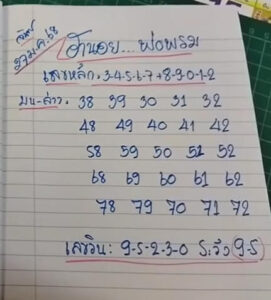 จันทร์
27 ม.ค. 68
ฮานอย... พ่อพรม
เลขหลัก. 3-4-5-6-7+8-9-0-1-2
บน-ล่าง. 38 39 30 31 32
48 49 40 41 42
58 59 50 51 52
68 69 60 61 62
78 79 70 71 72
เลขวิน: 9-5-2-3-0 ระวัง 9-5